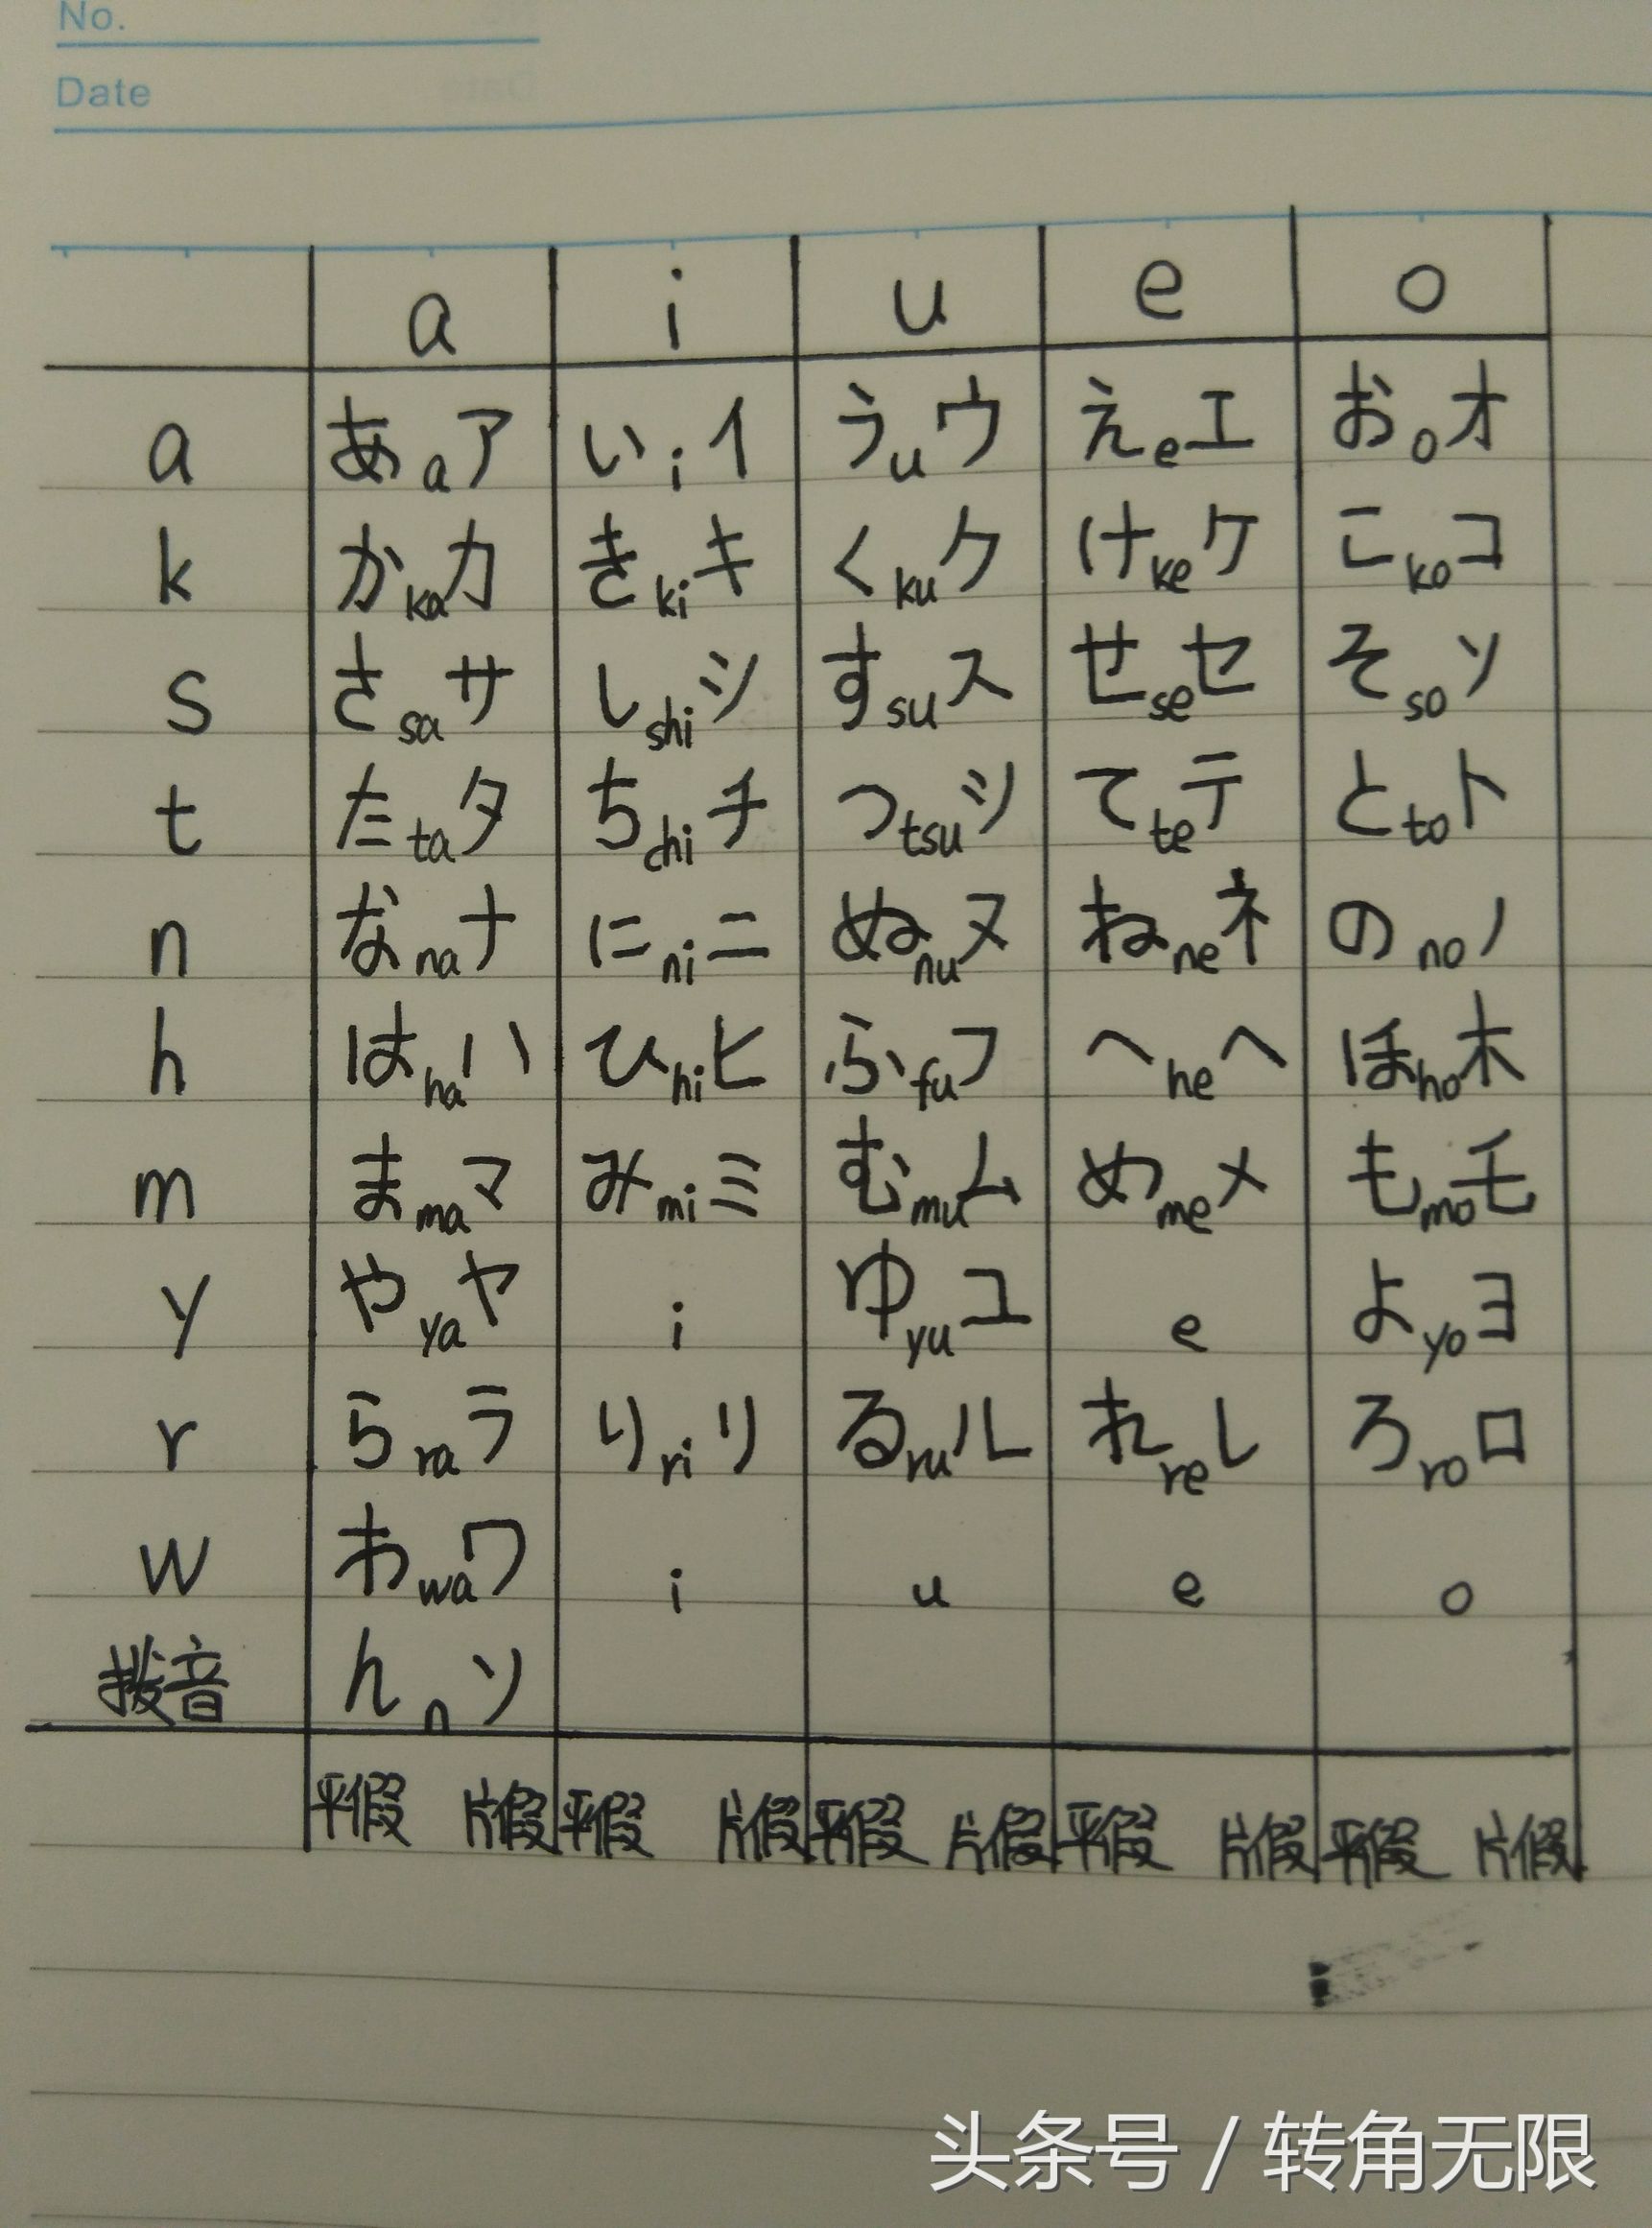 No.
Date
a i u e o
a あaア いiイ うuウ えeエ おoオ
k かkaカ きkiキ くkuク けkeケ こkoコ
s さsaサ しshiシ すsuス せseセ そsoソ
t たtaタ ちchiチ つtsuツ てteテ とtoト
n なnaナ にniニ ぬnuヌ ねneネ のnoノ
h はhaハ ひhiヒ ふfuフ へheヘ ほhoホ
m まmaマ みmiミ むmuム めmeメ もmoモ
y やyaヤ i ゆyuユ e よyoヨ
r らraラ りriリ るruル れreレ ろroロ
w わwaワ i u e o
拨音 んnソ
平假 片假 平假 片假 平假 片假 平假 片假 平假 片假
头条号 / 转角无限